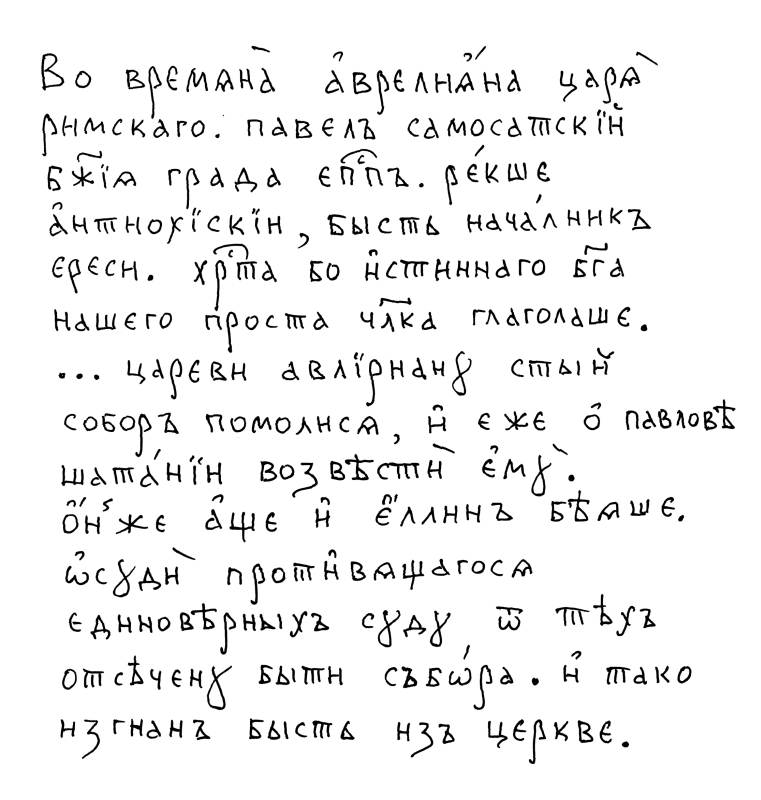 Во времѧна̀ а҆врелиа҆́на царѧ̀
римска́го. павелъ самосатскїй
бж҃їѧ града еп҇пъ. ре́кше
а҆нтиохїскїи, бысть нача́лникъ
ереси. хр҇та бо и҆стиннаго бг҃а
нашего проста чл҃ка глаголаше.
... цареви авлїриану стый
соборъ помолисѧ, и҆ еже о҆ павловѣ
шата́нїи возвѣстѝ е҆мꙋ̀.
ѻ҆́нъ же а҆ще и҆ е҆́ллинъ бѣѧше.
ѡ҆сꙋдѝ проти҆вѧщагосѧ
единовѣрныхъ сꙋдꙋ ѿ тѣхъ
отсѣченꙋ быти събѡ́ра. и҆ тако
изгнанъ бысть изъ церкве.